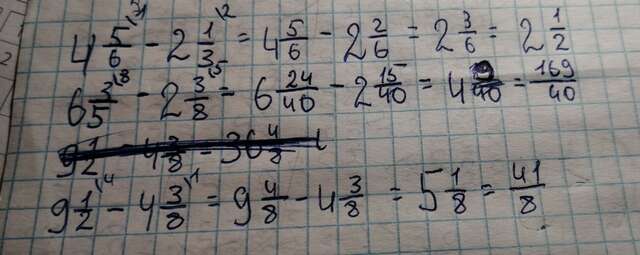 4 5/6 \1 - 2 1/3 \2 = 4 5/6 - 2 2/6 = 2 3/6 = 2 1/2
6 3/5 \8 - 2 3/8 \5 = 6 24/40 - 2 15/40 = 4 9/40 = 169/40
9 1/2 \4 - 4 3/8 \1 = 9 4/8 - 4 3/8 = 5 1/8 = 41/8